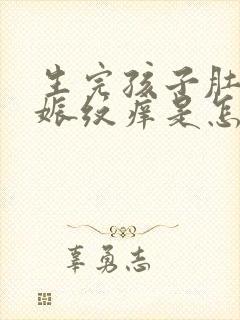 生完孩子肚
娠纹痒是怎
辜勇志